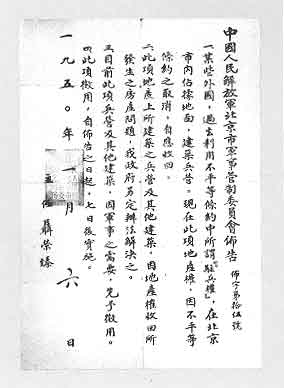 中國人民解放軍北京市軍事管制委員會佈告
佈字第拾伍號
一、某些外國，過去利用不平等條約中所謂“駐兵權”，在北京
市內佔據地面，建築兵營。現在此項地產權，因不平等
條約之取消，自應收回。
二、此項地產上所建築之兵營及其他建築，因地產權收回所
發生之房產問題，我政府另定辦法解決之。
三、目前此項兵營及其他建築，因軍事之需要，先予徵用。
四、此項徵用，自佈告之日起，七日後實施。
主任 聶榮臻
一九五〇年一月六日